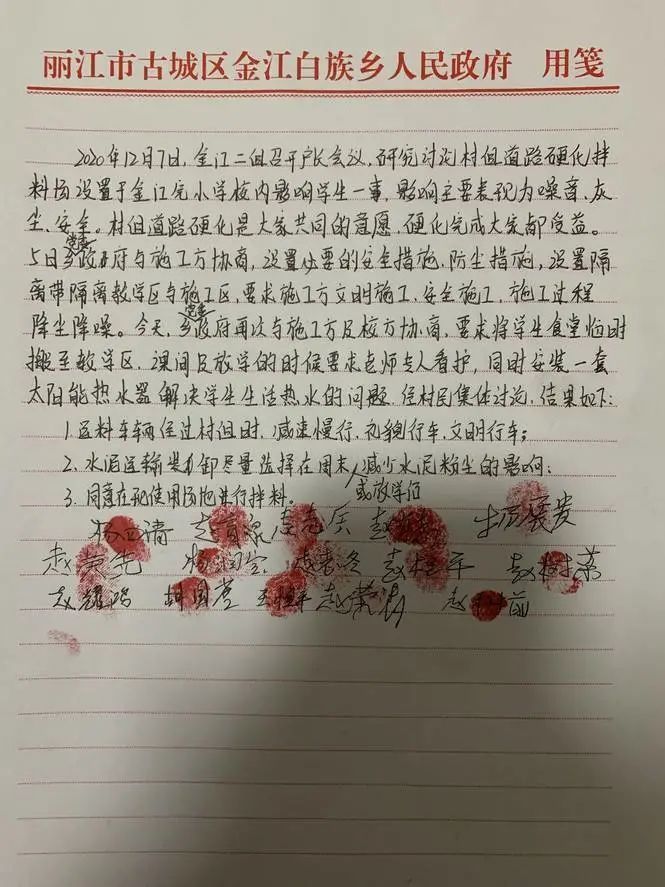 丽江市古城区金江白族乡人民政府 用笺
2020年12月7日,金江二组召开户长会议,研究讨论村组道路硬化拌
料场设置于金江完小学校内影响学生一事,影响主要表现为噪音、灰
尘、安全。村组道路硬化是大家共同的意愿,硬化完成大家都受益。
党委
5日乡政府与施工方协商,设置必要的安全措施、防尘措施,设置隔
离带隔离教学区与施工区,要求施工方文明施工、安全施工,施工过程
党委
降尘降噪。今天,乡政府再次与施工方及校方协商,要求将学生食堂临时
搬至教学区,课间及放学的时候要求老师专人看护,同时安装一套
太阳能热水器解决学生生活热水的问题,经村民集体讨论,结果如下:
1.运料车辆经过村组时,减速慢行,礼貌行车,文明行车;
2.水泥运输装卸尽量选择在周末,减少水泥粉尘的影响;
或放学后
3.同意在现使用场地进行拌料。
赵荣先 赵桂军 赵树荣